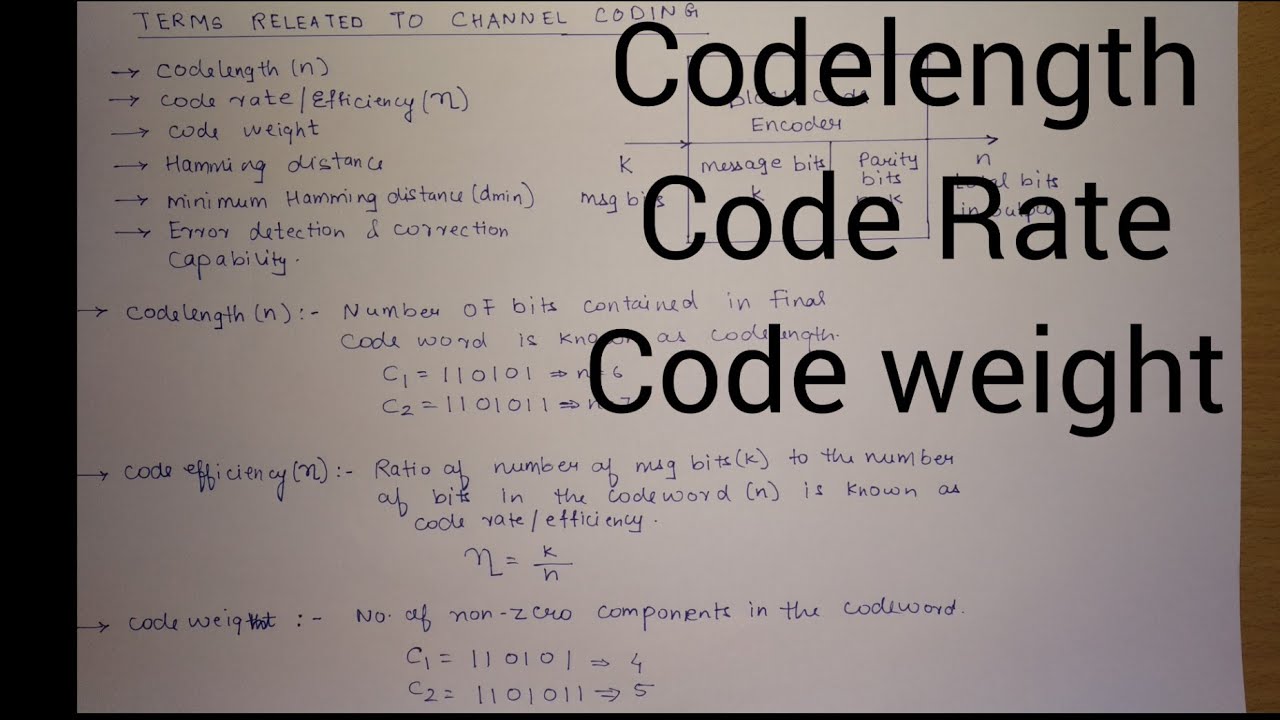 TERMS RELEATED TO CHANNEL CODING
→ codelength (n)
→ code rate/Efficiency (η)
→ code weight
→ Hamming distance
→ minimum Hamming distance (dmin)
→ Error detection & correction
capability.
Codelength
Code Rate
Code weight
Block Code
Encoder
K
msg bits
message bits
k
Parity
bits
n
total bits
in output
→ codelength (n) :- Number of bits contained in final
code word is known as codelength.
C1 = 110101 ⇒ n=6
C2 = 1101011 ⇒ n=7
→ code efficiency (η) :- Ratio of number of msg bits (k) to the number
of bits in the codeword (n) is known as
code rate/efficiency.
η = k/n
→ code weight :- No. of non-zero components in the codeword.
C1 = 110101 ⇒ 4
C2 = 1101011 ⇒ 5